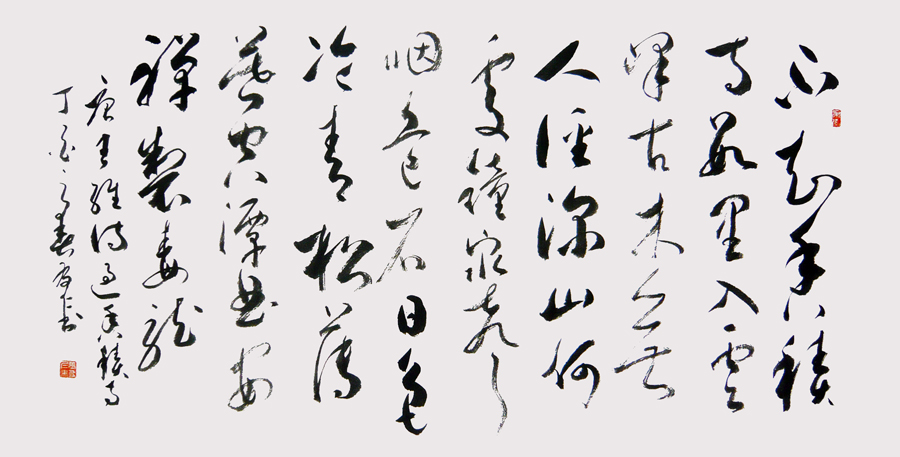 不知香積
寺數里入雲
峯古木無
人徑深山何
處鐘泉聲
咽危石日色
冷青松薄
暮空潭曲安
禪製毒龍
唐王維詩過香積寺
丁酉之春